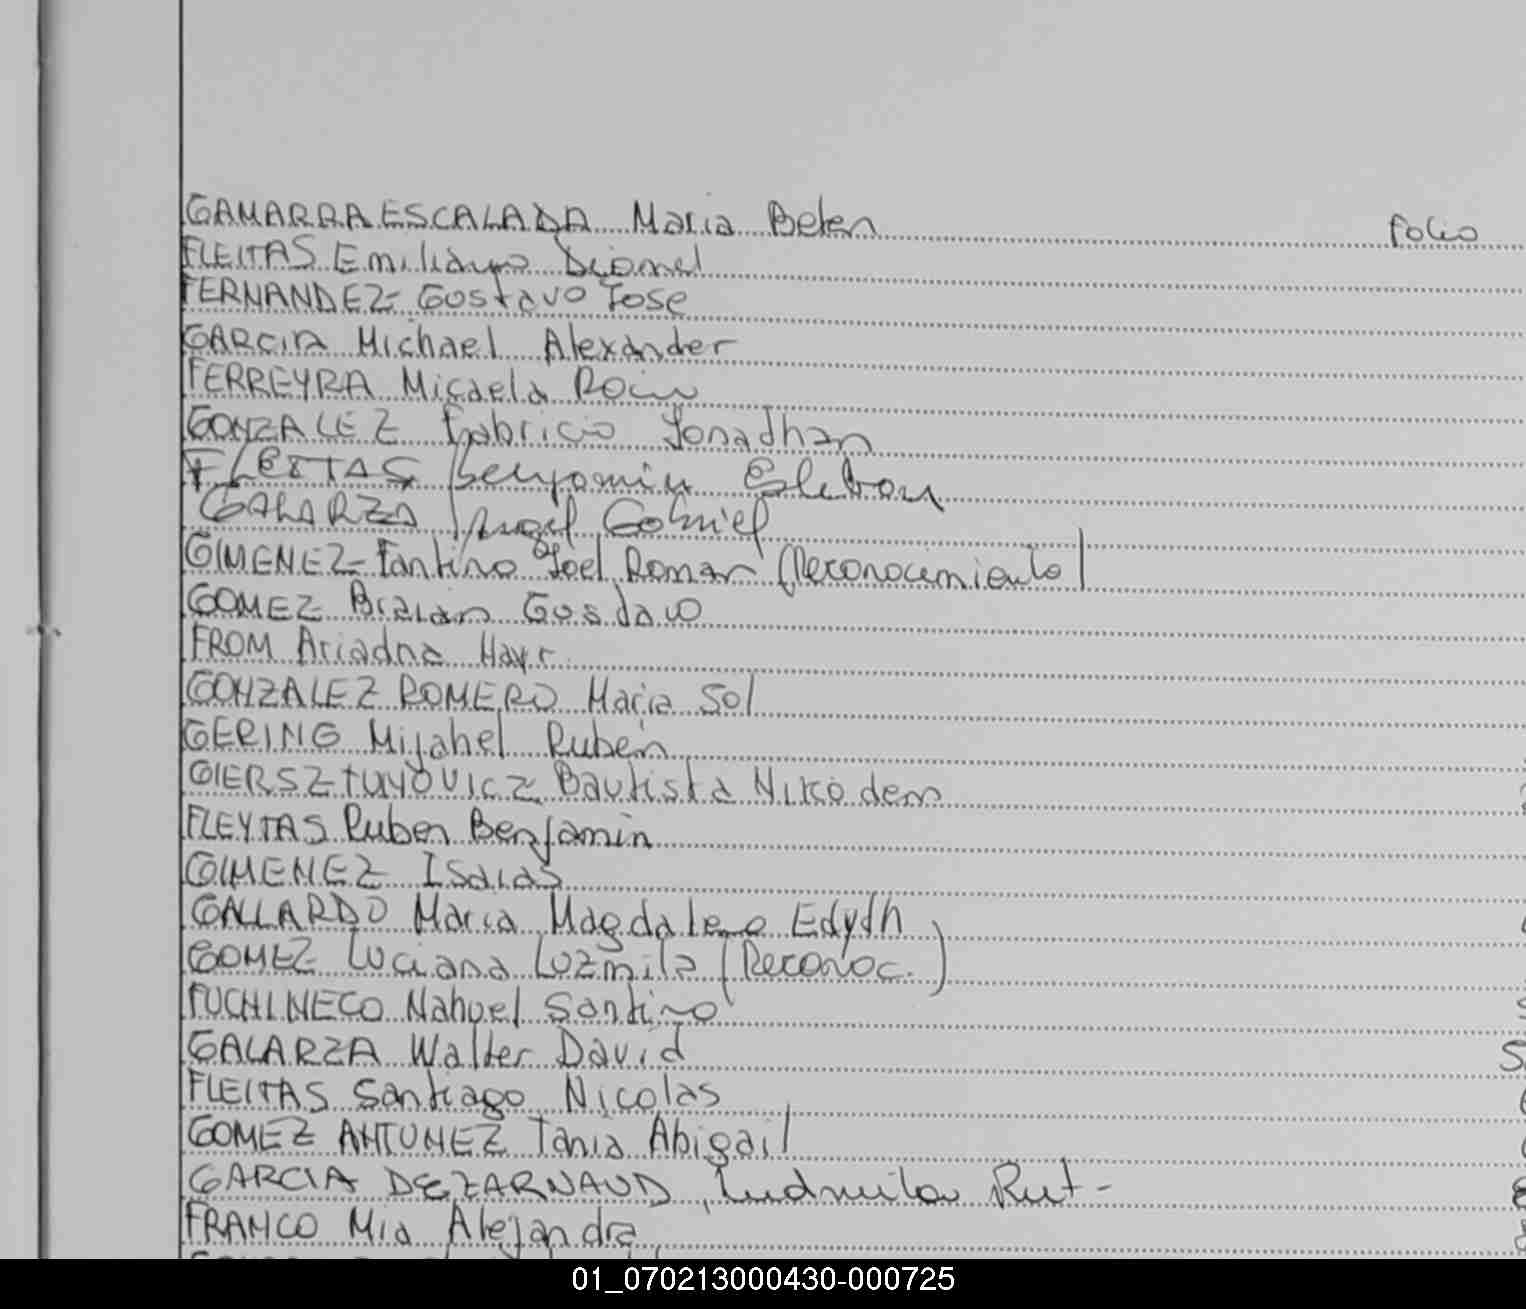 GAMARRA ESCALADA Maria Belen folio
FLEITAS Emiliano Dionel
FERNANDEZ Gustavo Jose
GARCIA Michael Alexander
FERREYRA Micaela Rocio
GONZALEZ Fabricio Jonadhan
FLEITAS Benjamin Esteban
GALARZA Angel Gabriel
GIMENEZ Fantino Joel Roman (Reconocimiento)
GOMEZ Braian Gustavo
FROM Ariadna
GONZALEZ ROMERO Maria Sol
GERING Mijahel Ruben
GIERSZTUNOVICZ Bautista Nikodem
FLEYTAS Ruben Benjamin
GIMENEZ Isaias
GALLARDO Maria Magdalena Edydh
GOMEZ Luciana Luzmila (Reconoc.)
FUCHINECO Nahuel Santino
GALARZA Walter David
FLEITAS Santiago Nicolas
GOMEZ ANTUNEZ Tania Abigail
GARCIA DEZARNAUD, Ludmila Rut-
FRANCO Mia Alejandra
01_070213000430-000725